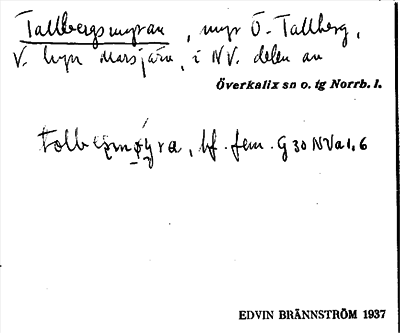 Tallbergsmyran, myr Ö. Tallberg,
V. byn Marsjärv, i NV. delen av
Överkalix sn o. tg Norrb. l.
bf. fem. G 30 NVa1,6
EDVIN BRÄNNSTRÖM 1937